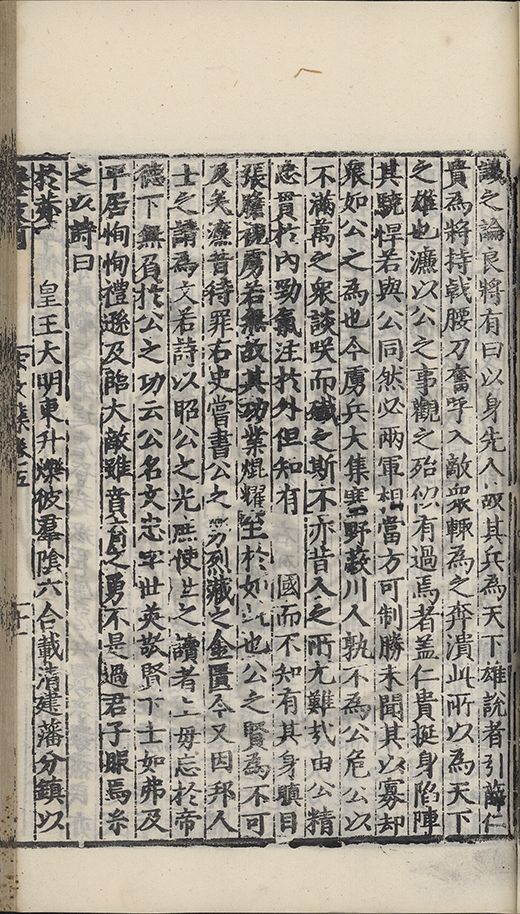 議之論良將有曰以身先人故其兵為天下雄說者引薛仁
貴為將持戟腰刀奮呼入敵眾輒為之奔潰此所以為天下
之雄也濂以公之事觀之殆似有過焉者盖仁貴挺身陷陣
其驍悍若與公同然必兩軍相當方可制勝未聞其以寡却
衆如公之為也今虜兵大集野蔽川人孰不為公危公以
不滿萬之衆談咲而殲之斯不亦昔人之所尤難哉由公精
忠貫於內勁氣注於外但知有 國而不知有其身瞋目
張膽視虜若無故其功業焜耀至於如此也公之賢為不可
及矣濂昔待罪右史嘗書公之功烈藏之金匱今又因邦人
士之請為文若詩以昭公之光庶使世之讀者上毋忘於帝
德下無負於公之功云公名文忠字世英敬賢下士如弗及
平居恂恂禮遜及臨大敵雖賁育之勇不是過君子服焉系
之以詩曰
皇王大明東升爍彼羣陰六合載清建藩分鎮以